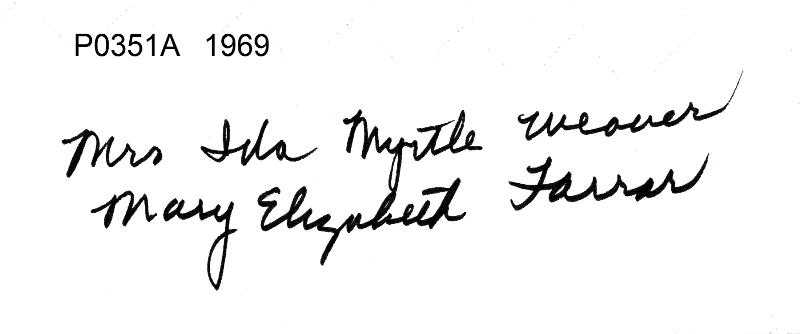 P0351A 1969
Mrs Ida Myrtle Weaver
Mary Elizabeth Farrar